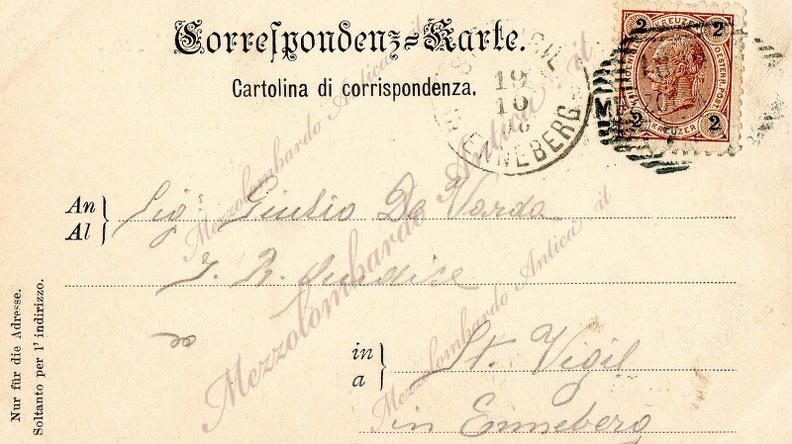 Correspondenz-Karte.
Cartolina di corrispondenza.
2 KREUZER 2
OESTERR. POST
2 KREUZER 2
19
10
IN ENNEBERG
An
Al
Sig: Giulio De Varda
I. R. Giudice
in
a
St. Vigil
in Enneberg
Nur für die Adresse.
Soltanto per l' indirizzo.
Mezzolombardo Antica .it
Mezzolombardo Antica .it
Mezzolombardo Antica .it